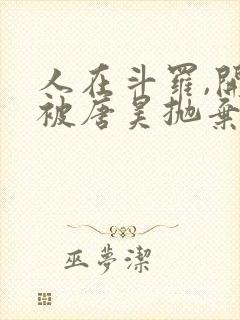 人在斗羅,開
被唐昊拋棄
巫夢潔